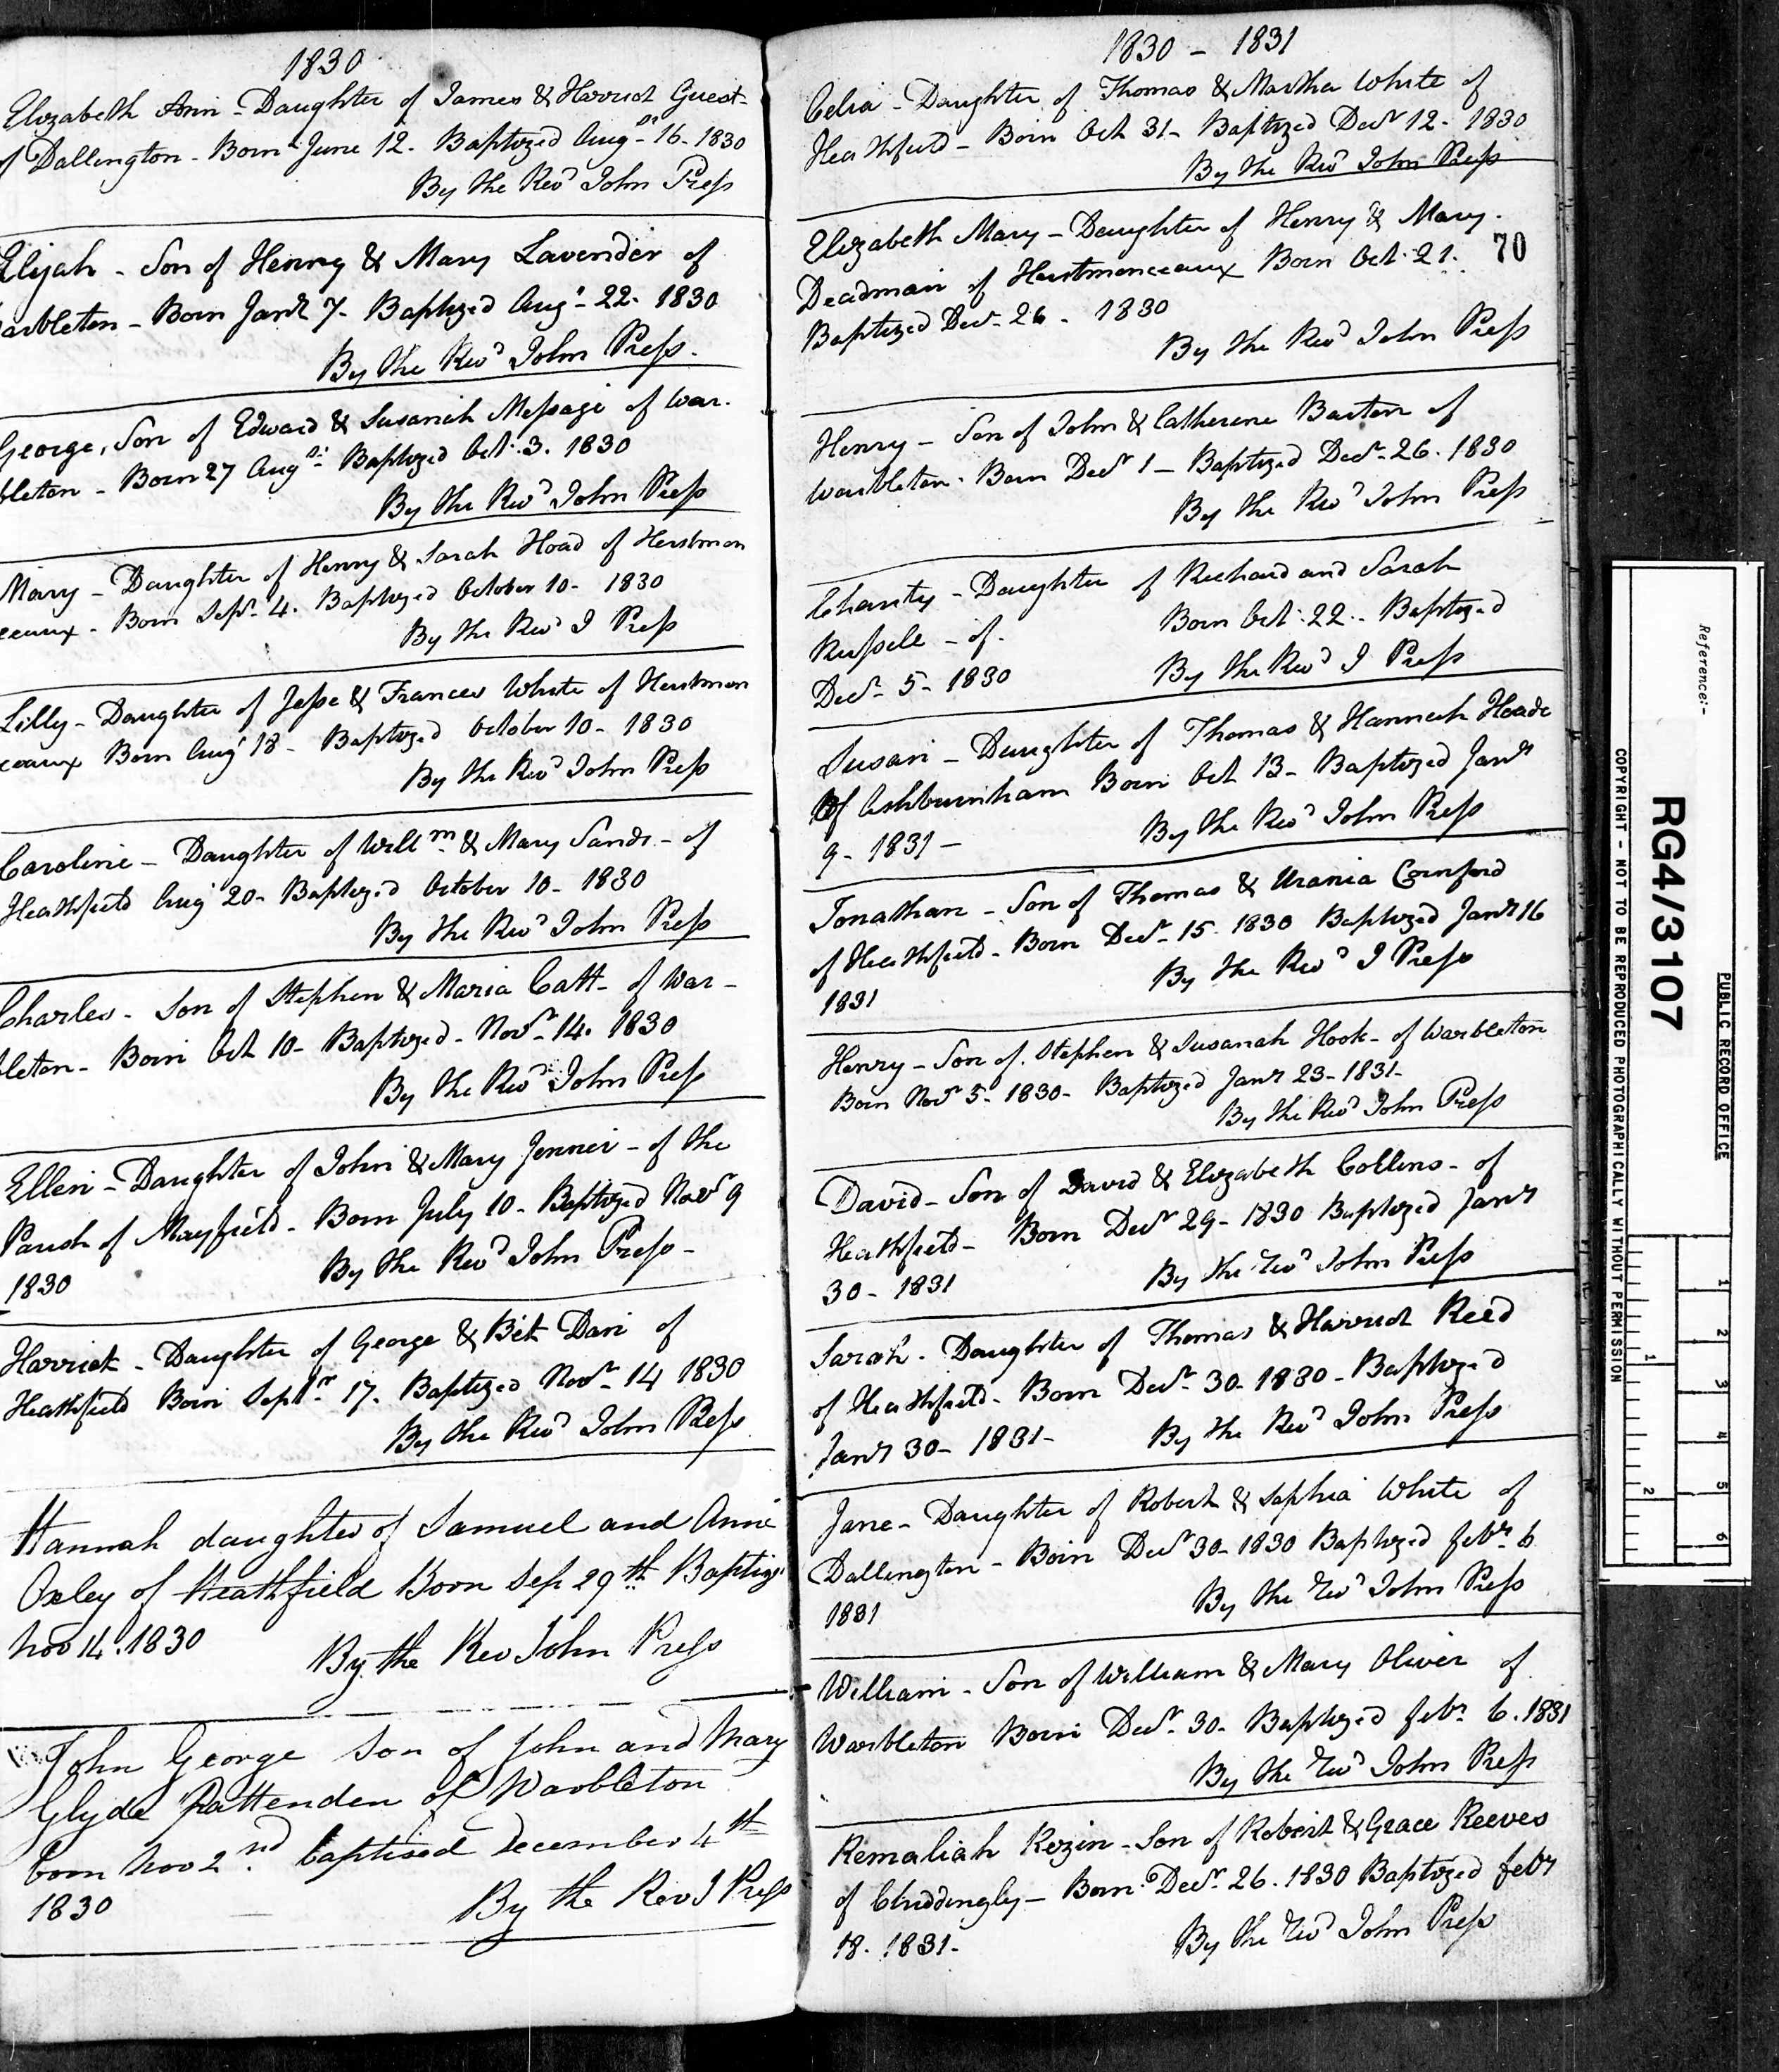 1830
Elizabeth Ann - Daughter of James & Harriet Guest -
of Dallington - Born June 12. Baptized Augst 16 - 1830
By the Revd John Press
Elijah - Son of Henry & Mary Lavender of
arbleton - Born Jany 7 - Baptized Augt 22 - 1830
By the Revd John Press.
George, Son of Edward & Susanah Message of War-
bleton - Born 27 Augst Baptized Oct. 3. 1830
By the Revd John Press
Mary - Daughter of Henry & Sarah Hoad of Herstmon
ceaux - Born Sepr 4. Baptized October 10 - 1830
By the Revd J Press
Lilly - Daughter of Jesse & Frances White of Herstmon
ceaux Born Augt 18 - Baptized October 10 - 1830
By the Revd John Press
Caroline - Daughter of Willm & Mary Sands - of
Heathfield Augt 20 - Baptized October 10 - 1830
By the Revd John Press
Charles - Son of Stephen & Maria Catt - of War -
bleton - Born Oct 10 - Baptized - Novr 14. 1830
By the Revd John Press
Ellen - Daughter of John & Mary Jenner - of the
Parish of Mayfield - Born July 10 - Baptized Novr 9
1830 By the Revd John Press -
Harriet - Daughter of George & Bet Dan of
Heathfield Born Septr 17. Baptized Novr 14 1830
By the Revd John Press
Hannah daughter of Samuel and Anne
Oxley of Heathfield Born Sep 29th Baptize
Nov 14. 1830 By the Rev John Press
John George Son of John and Mary
Glyde Pattenden of Warbleton
born Nov 2nd baptised December 4th
1830 By the Rev J Press
1830 - 1831
Celia - Daughter of Thomas & Martha White of
Heathfield - Born Oct 31 - Baptized Decr 12 - 1830
By the Revd John Press
Elizabeth Mary - Daughter of Henry & Mary.
Deadman of Herstmonceaux Born Oct. 21. 70
Baptized Decr 26 - 1830
By the Revd John Press
Henry - Son of John & Catherine Barton of
Warbleton. Born Decr 1 - Baptized Decr 26. 1830
By the Revd John Press
Charity - Daughter of Richard and Sarah
Russell - of. Born Oct. 22.. Baptized
Decr 5 - 1830 By the Revd J Press
Susan - Daughter of Thomas & Hannah Hoade
Of Ashburnham Born Oct 13 - Baptized Jany
9 - 1831 - By the Revd John Press
Jonathan - Son of Thomas & Urania Cornford
of Heathfield - Born Decr 15. 1830 Baptized Jany 16
1831 By the Revd J Press
Henry - Son of Stephen & Susanah Hook - of Warbleton
Born Novr 5 - 1830 - Baptized Jany 23 - 1831 -
By the Revd John Press
David - Son of David & Elizabeth Collins - of
Heathfield - Born Decr 29 - 1830 Baptized Jany
30 - 1831 By the Revd John Press
Sarah - Daughter of Thomas & Harriet Reed
of Heathfield - Born Decr 30 - 1830 - Baptized
Jany 30 - 1831 - By the Revd John Press
Jane - Daughter of Robert & Sophia White of
Dallington - Born Decr 30 - 1830 Baptized Feby 6
1831 By the Revd John Press
William - Son of William & Mary Oliver of
Warbleton Born Decr 30 - Baptized Feby 6. 1831
By the Revd John Press
Remaliah Rezin - Son of Robert & Grace Reeves
of Chiddingly - Born Decr 26. 1830 Baptized Feby
18. 1831 - By the Revd John Press
Reference:-
RG4/3107
PUBLIC RECORD OFFICE
COPYRIGHT - NOT TO BE REPRODUCED PHOTOGRAPHICALLY WITHOUT PERMISSION
1 2 3 4 5 6
1 2